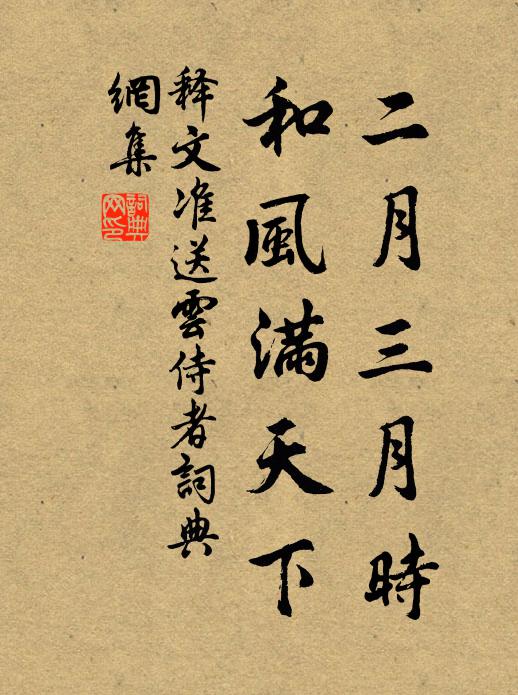 二月三月時
和風滿天下
释文准送雲侍者詞典
網集
詞典
网印